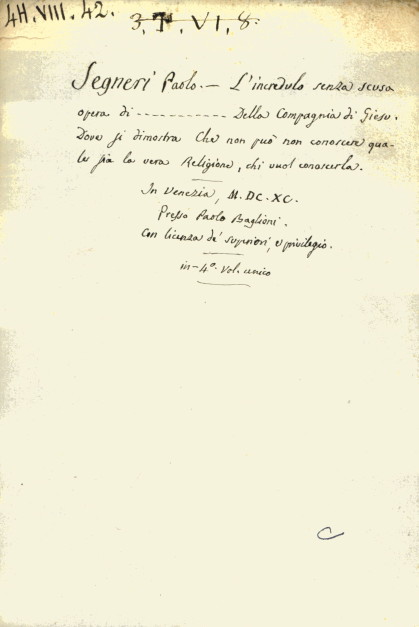 4H.VIII.42. 3.T.VI.8.
Segneri Paolo. — L'incredulo senza scusa
opera di ----------- Della Compagnia di Giesu.
Dove si dimostra Che non può non conoscere qua-
le sia la vera Religione, chi vuol conoscerla.
In Venezia, M.DC.XC.
Presso Paolo Baglioni.
Con licenza de' superiori, e privilegio.
in-4o. Vol. unico
C